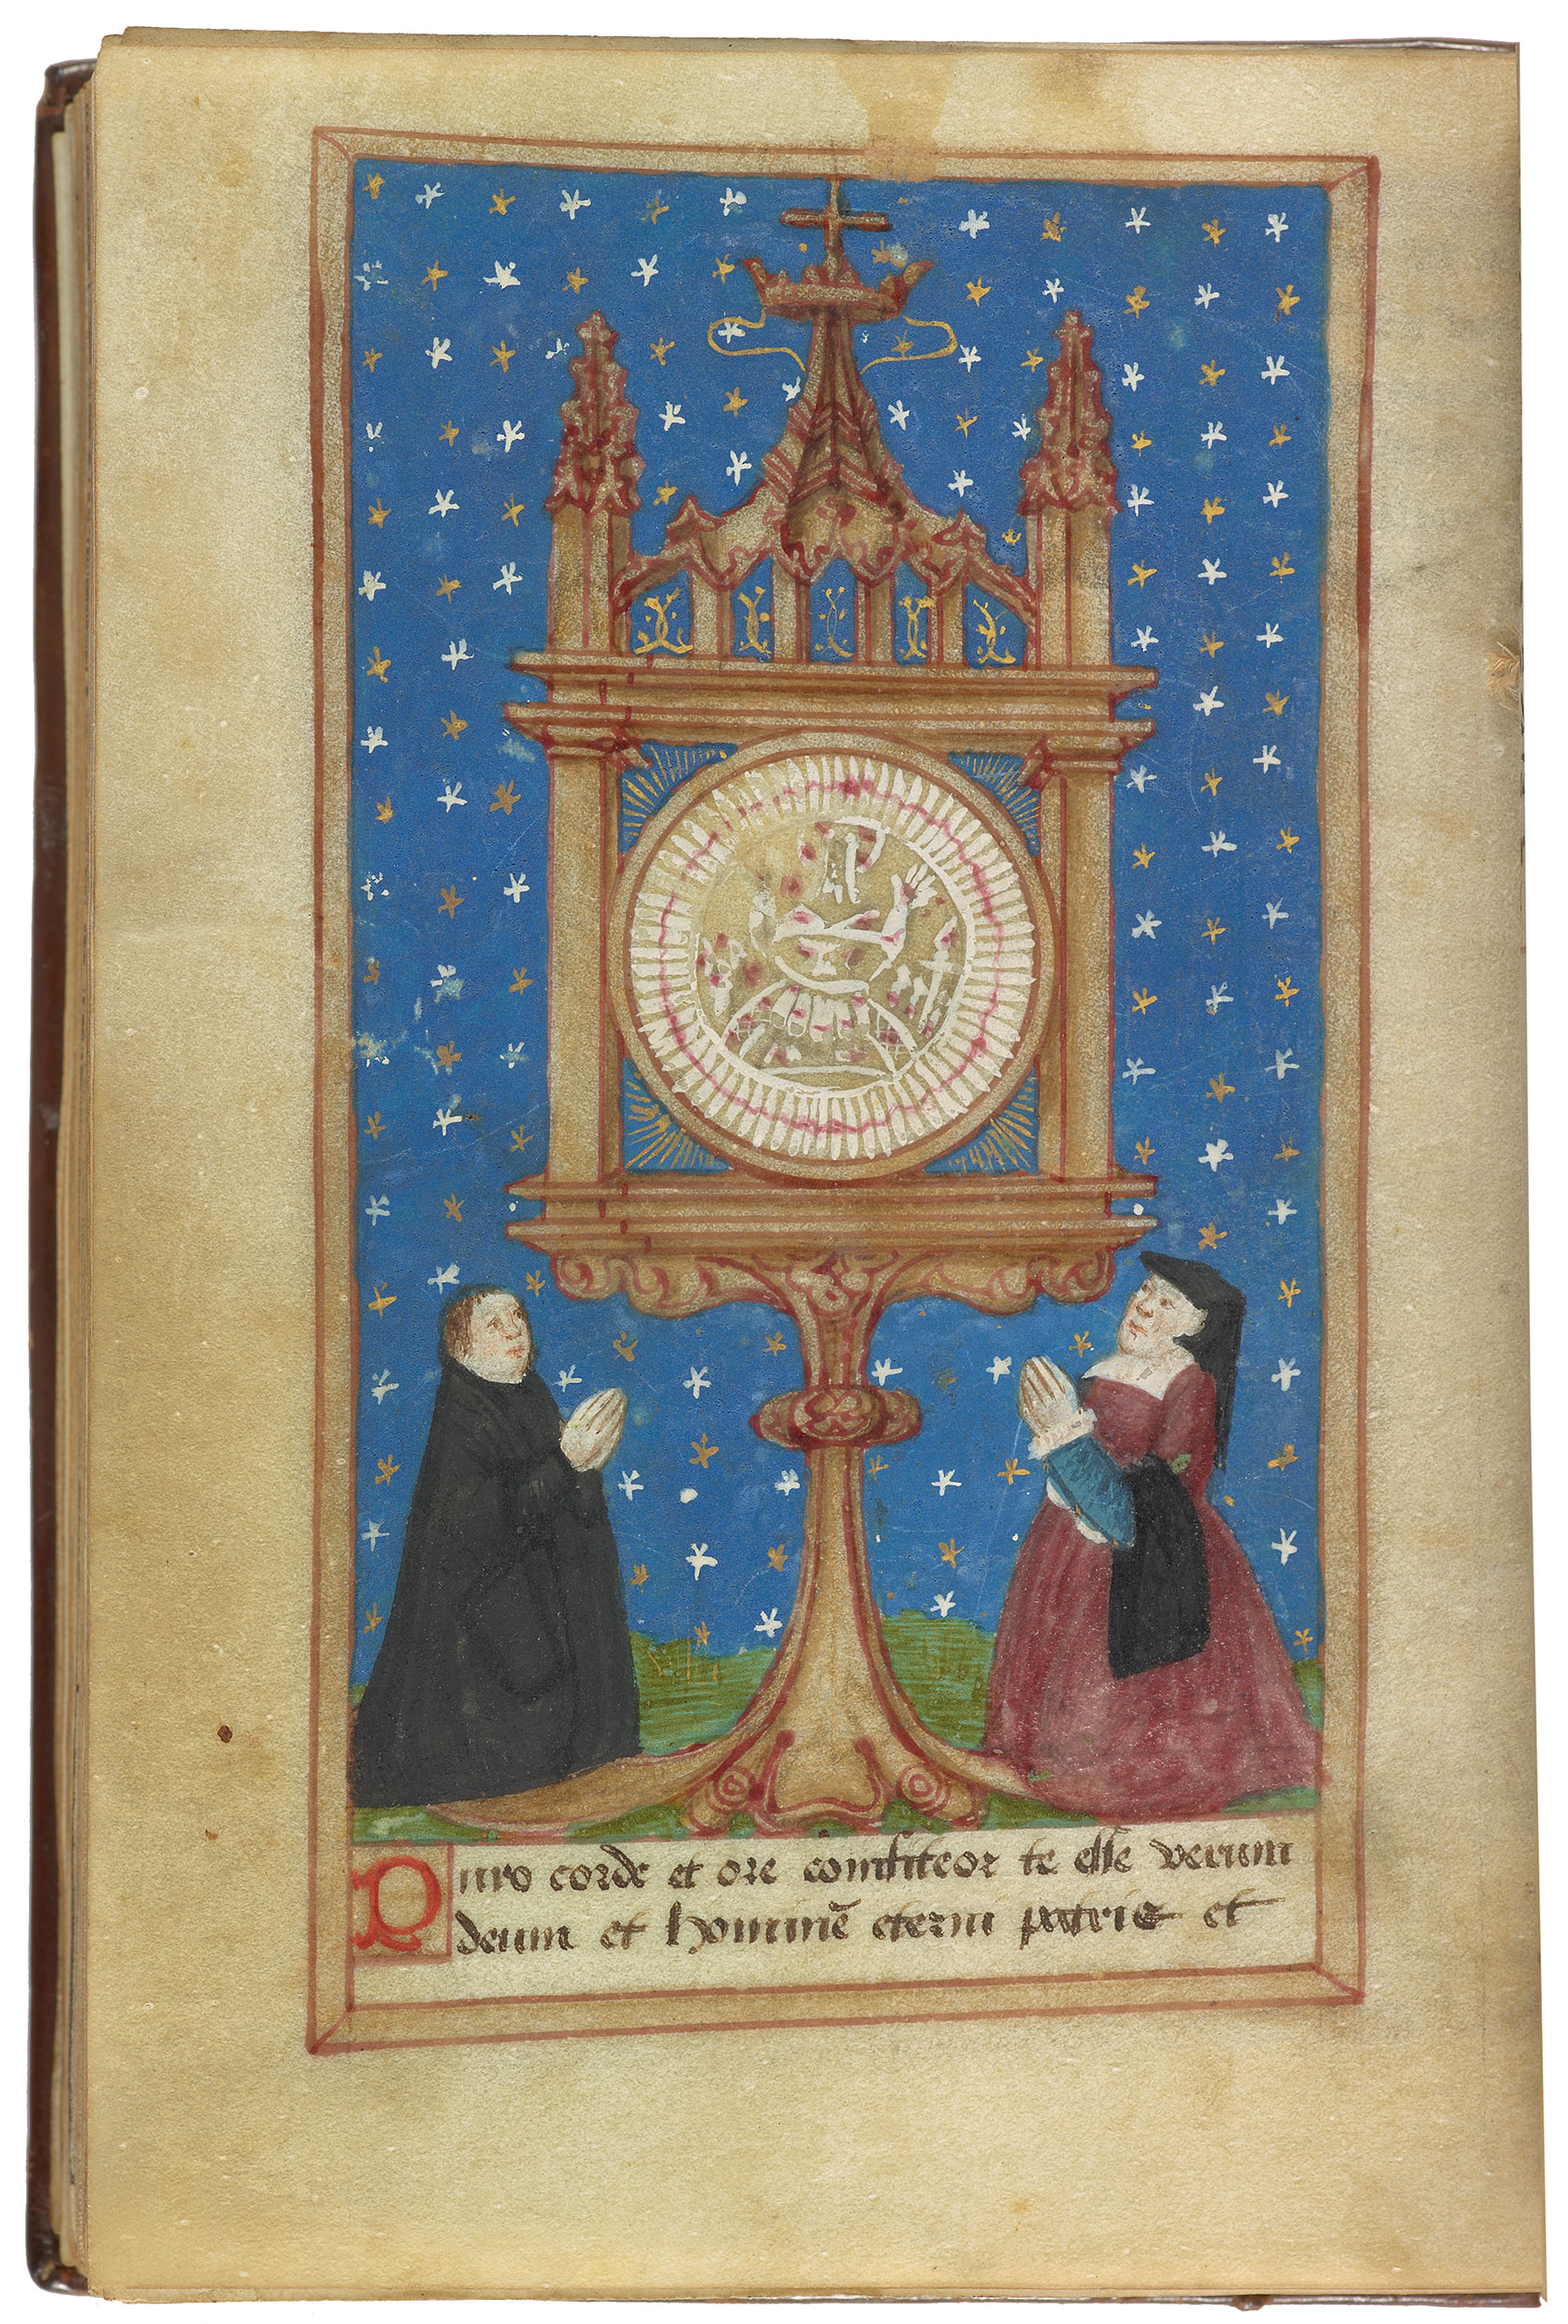 Puro corde et ore confiteor te esse verum
deum et hominē eterni patris et